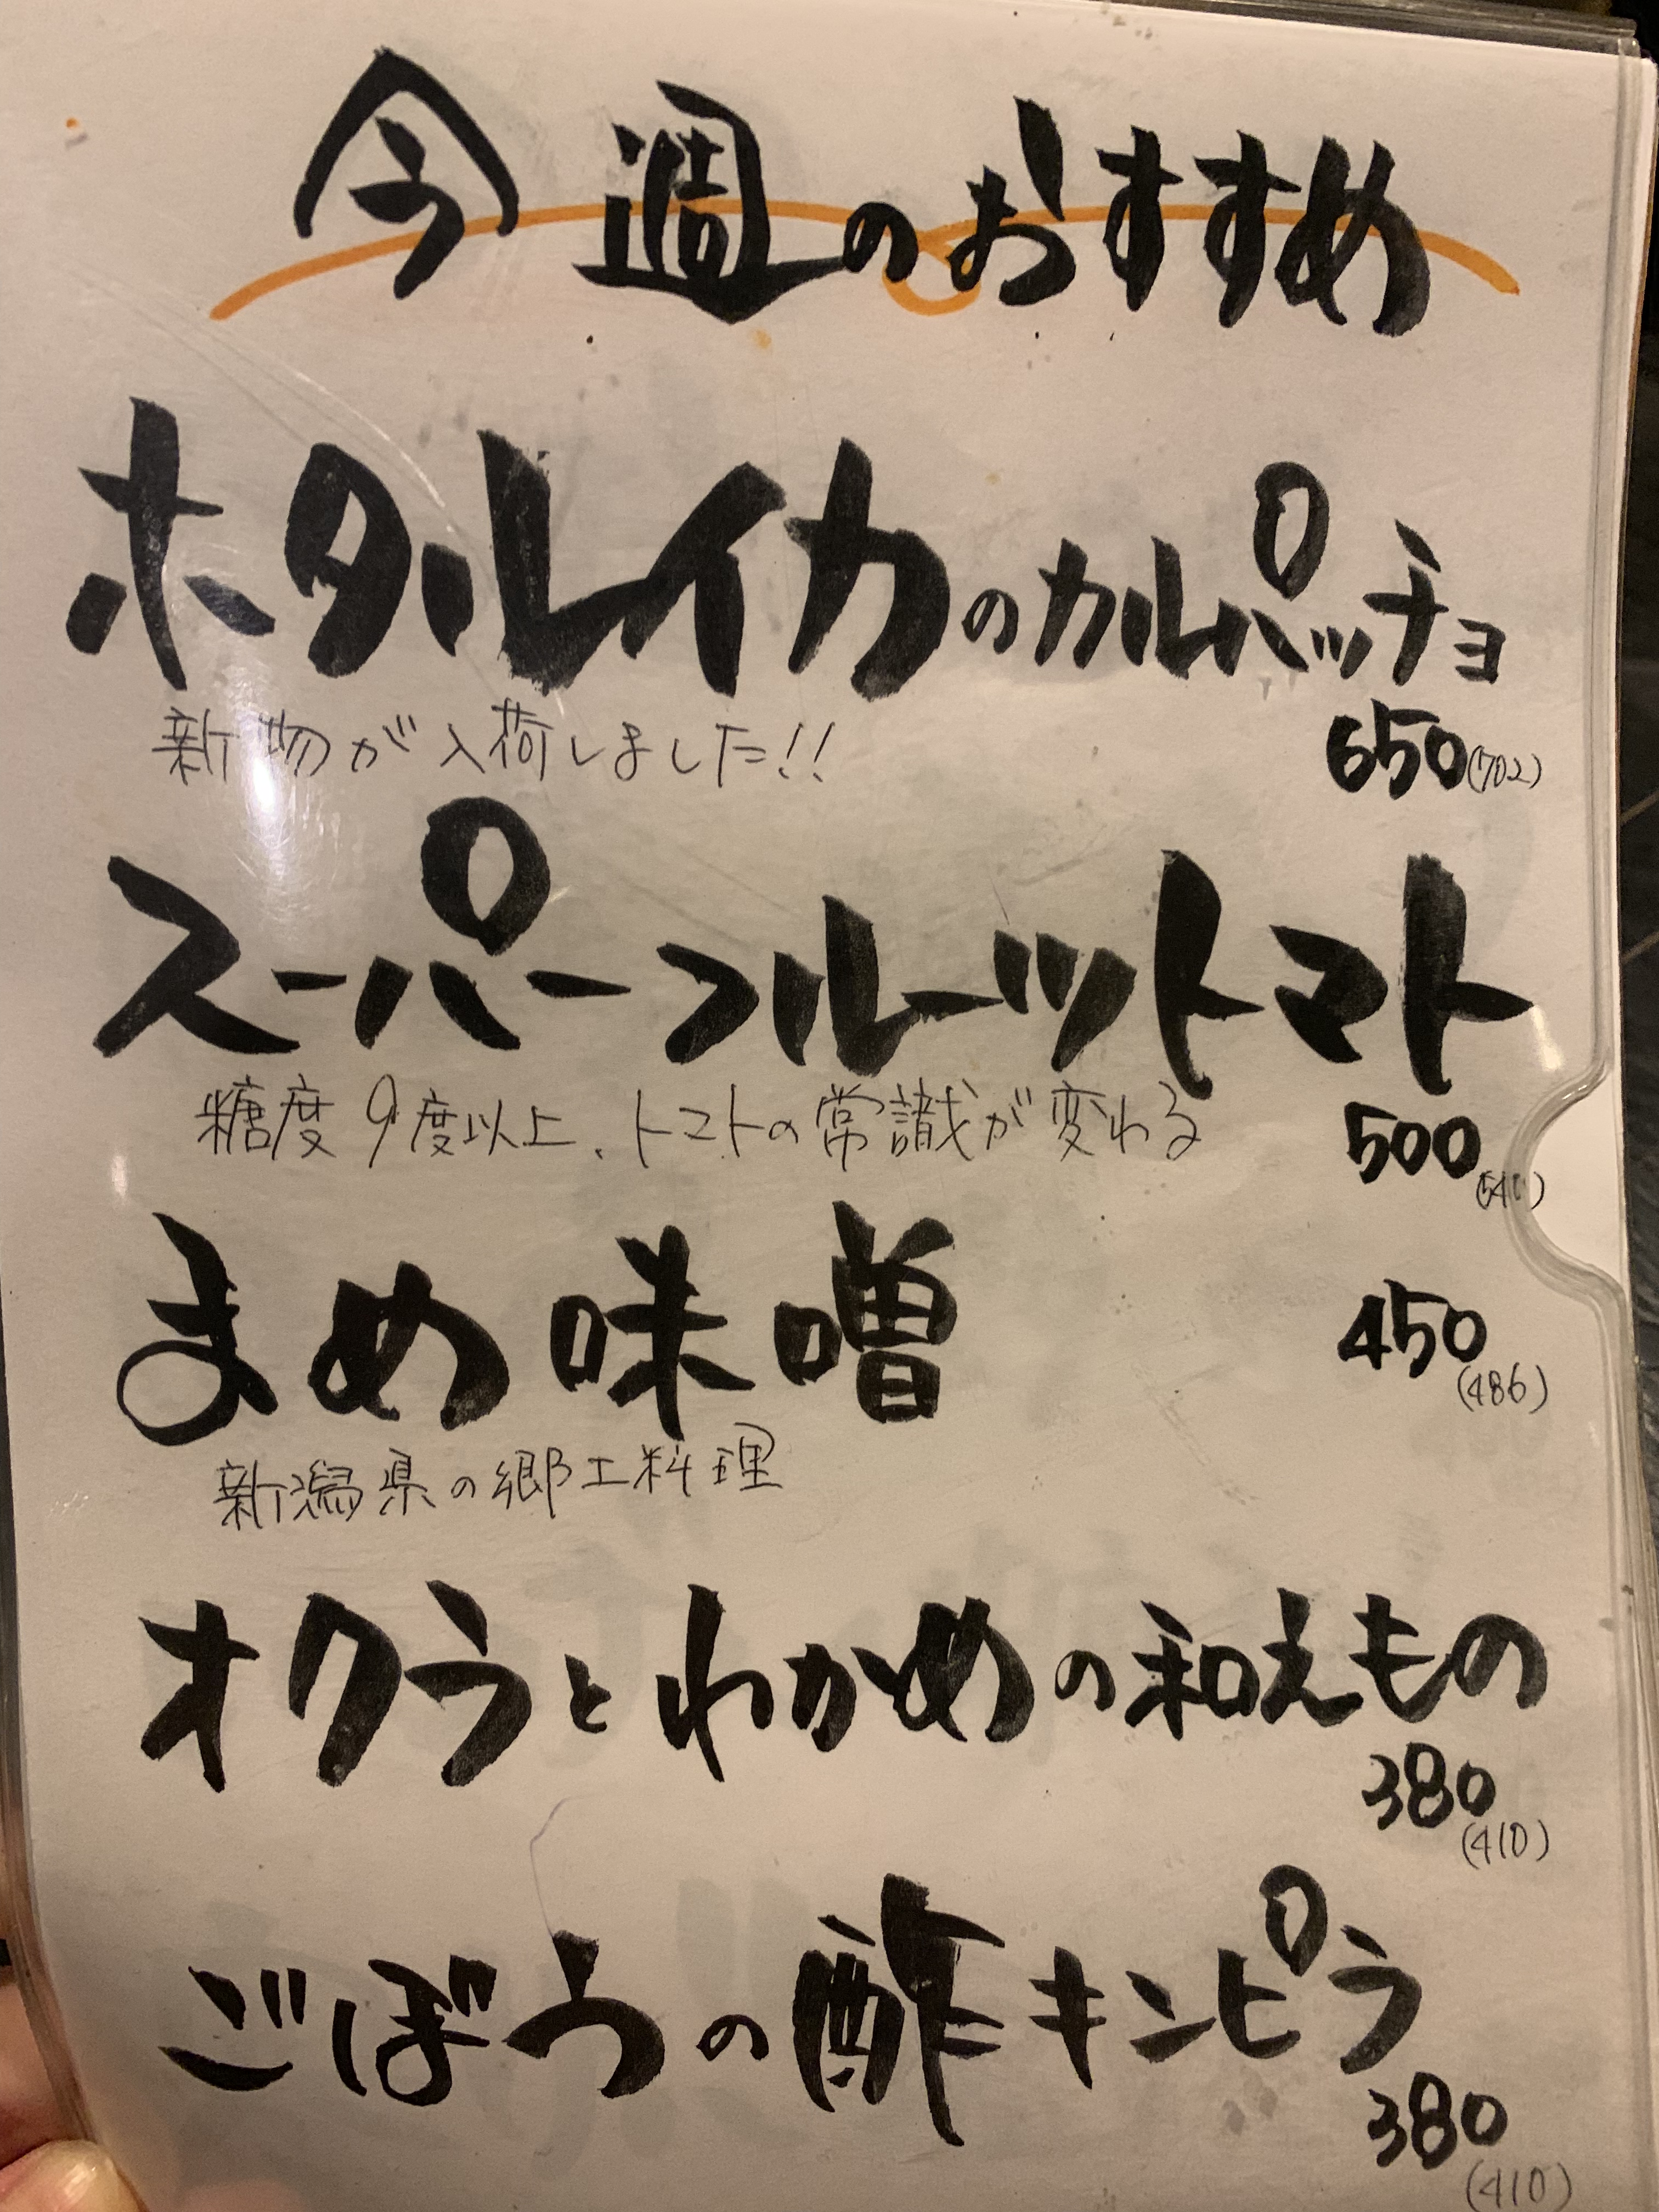 今週のおすすめ
ホタルイカのカルパッチョ
新物が入荷しました!!
650(702)
スーパーフルーツトマト
糖度9度以上、トマトの常識が変わる
500
まめ味噌
450
(486)
新潟県の郷土料理
オクラとわかめの和えもの
380
(410)
ごぼうの酢キンピラ
380
(410)